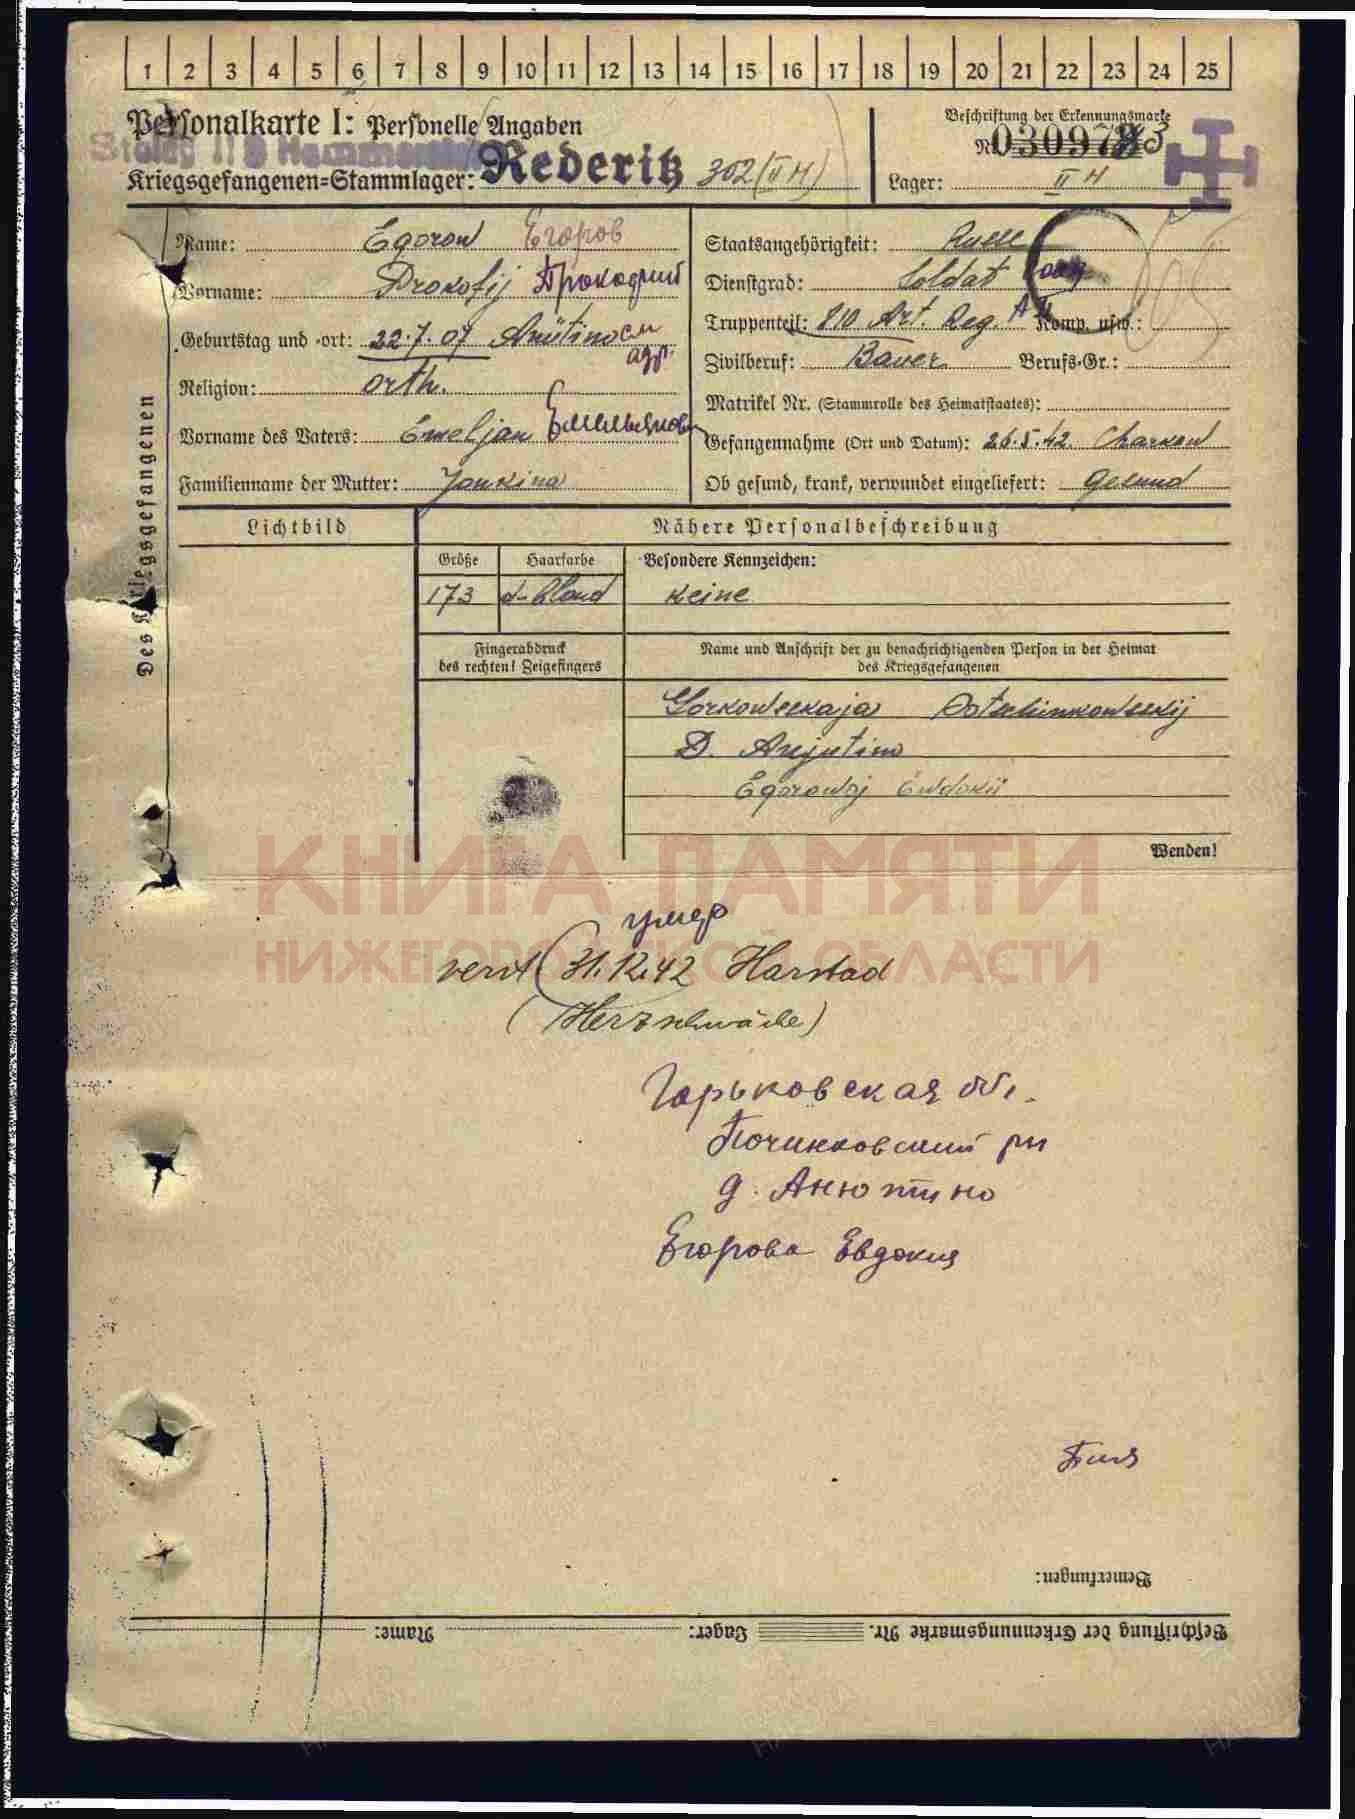 1 2 3 4 5 6 7 8 9 10 11 12 13 14 15 16 17 18 19 20 21 22 23 24 25
Personalkarte I: Personelle Angaben
Beschriftung der Erkennungsmarke
Kriegsgefangenen=Stammlager: Rederitz 302 (II H)
Nr. 03097
Lager: II H
Des Kriegsgefangenen
Name: Egorow Егоров
Vorname: Prokofij Прокофий
Geburtstag und -ort: 22.7.07 Anütino см
адр.
Religion: orth.
Vorname des Vaters: Emeljan Емельянович
Familienname der Mutter: Jankina
Staatsangehörigkeit: Russe
Dienstgrad: Soldat
Truppenteil: 810 Art. Reg. Komp. usw.:
Zivilberuf: Bauer Berufs-Gr.:
Matrikel Nr. (Stammrolle des Heimatstaates):
Gefangennahme (Ort und Datum): 26.5.42 Charkow
Ob gesund, krank, verwundet eingeliefert: Gesund
Lichtbild
Nähere Personalbeschreibung
Größe Haarfarbe Besondere Kennzeichen:
173 d-blond keine
Fingerabdruck
des rechten! Zeigefingers
Name und Anschrift der zu benachrichtigenden Person in der Heimat
des Kriegsgefangenen
Gorkowskaja Potschinkowskij
D. Anjutino
Egorowoj Ewdokii
Wenden!
КНИГА ПАМЯТИ
НИЖЕГОРОДСКОЙ ОБЛАСТИ
умер
verst 31.12.42 Harstad
(Herzschwäche)
Горьковская обл.
Починковский рн
д. Анютино
Егорова Евдокия
Bemerkungen:
Beschriftung der Erkennungsmarke Nr. Lager: Name: